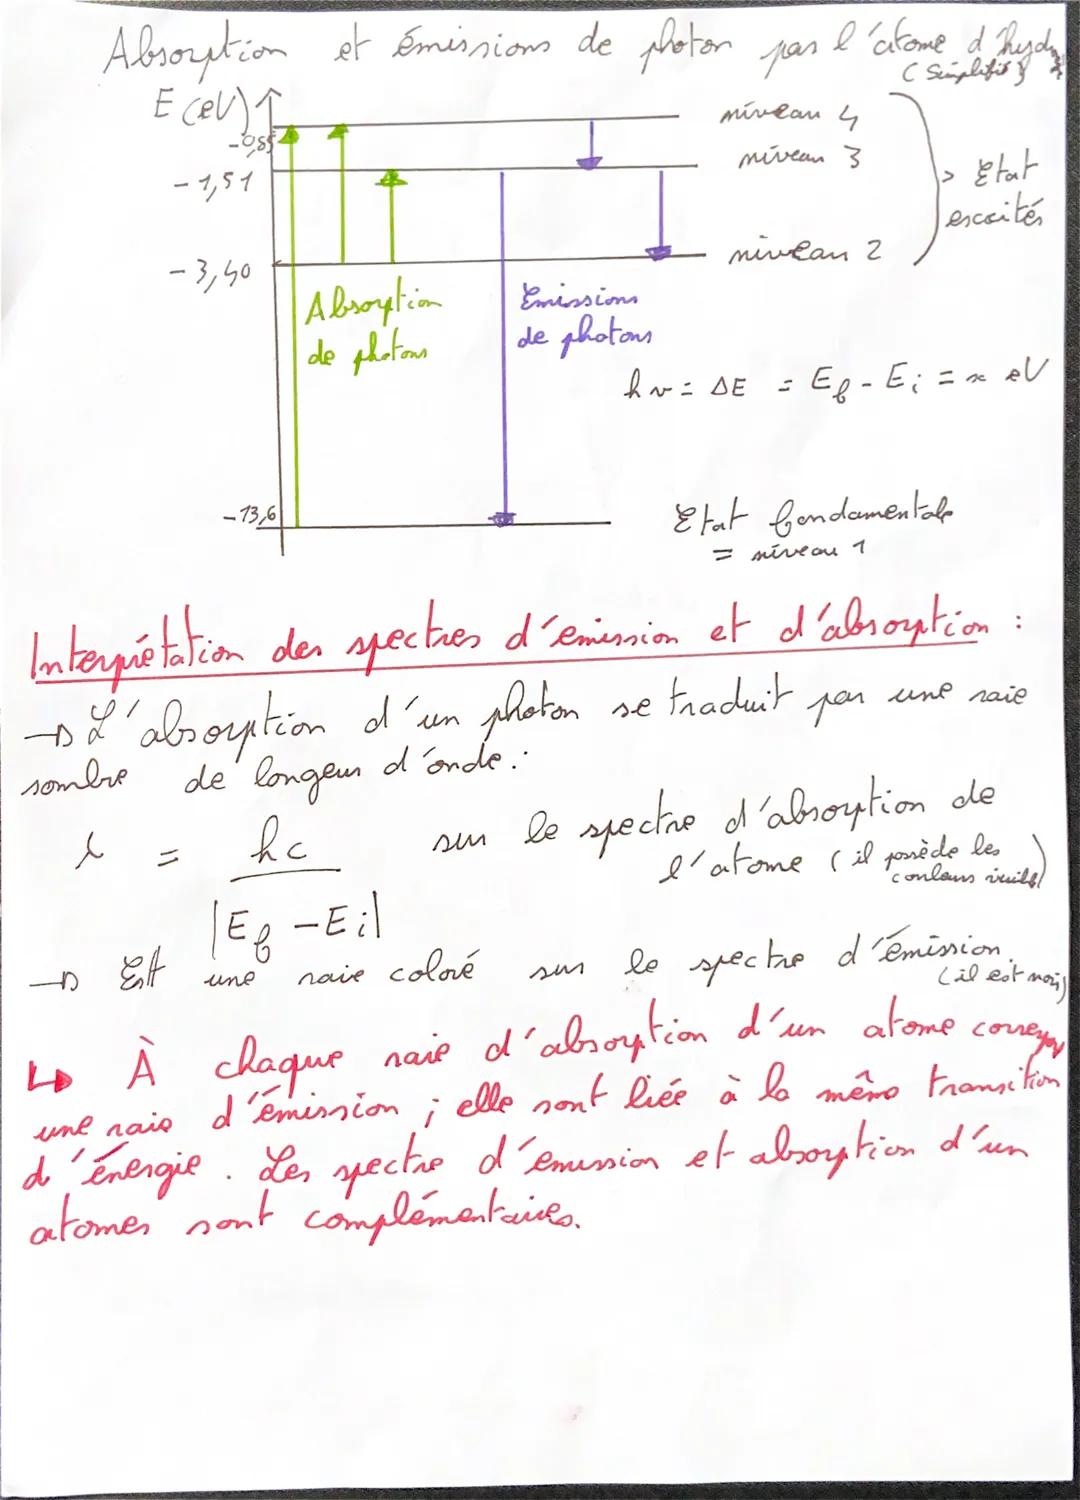 Absorption et émissions de photon par l'atome d'hydro
(Simplifié)
E (eV)
niveau 4
-0,85
niveau 3
-1,51
> Etat
esccités
niveau 2
-3,40
Absorption
de photons
Emissions
de photons
hν = ΔE = Ef - Ei = x eV
-13,6
Etat fondamentale
= niveau 1
Interprétation des spectres d'émission et d'absorption :
→ L'absorption d'un photon se traduit par une raie
sombre de longeur d'onde :
λ = hc
sur le spectre d'absorption de
l'atome (il possède les
couleurs
|Ef - Ei|
→ Et une raie coloré sur le spectre d'émission.
(il est noir)
↳ À chaque raie d'absorption d'un atome correspo
une raie d'émission ; elle sont liée à la même transition
d'énergie. Les spectre d'émission et absorption d'un
atomes sont complémentaires.